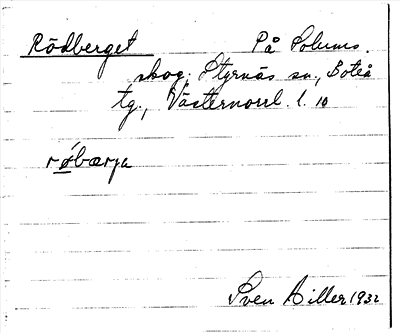 Rödberget På Solums
skog, Styrnäs sn., Boteå
tg., Västernorrl. l. 10
røbærja
Sven Hiller 1932